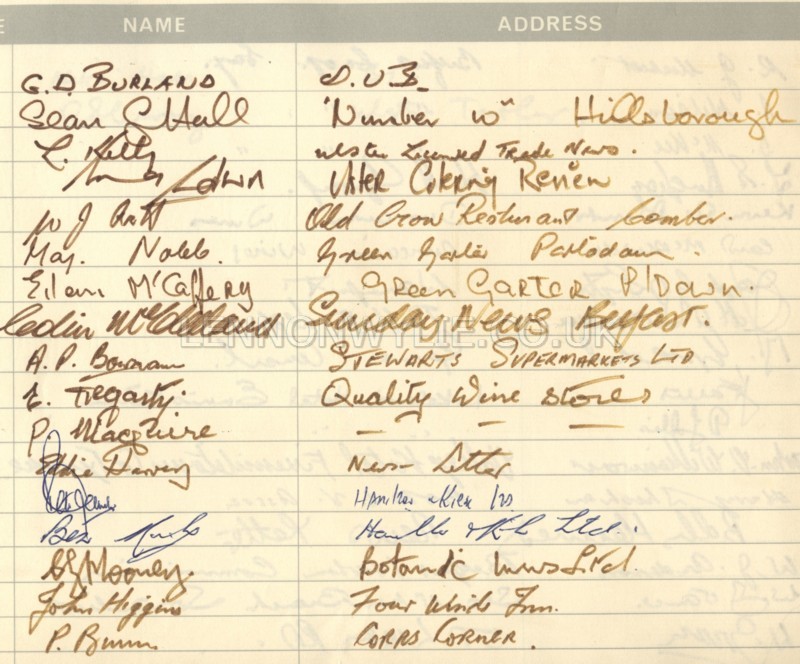 E NAME ADDRESS
G. D. BURLAND D.U.B.
Sean G Hall "Number 10" Hillsborough
L. Kelly Ulster Licensed Trade News.
Edwin Ulster Catering Review
W J Old Crow Resturant Comber.
May. Noble. Green Garter Portadown.
Eileen McCaffery GREEN GARTER P/Down.
Colin McClelland Sunday News Belfast.
LENNONWYLIE.CO.UK
A. P. Bowman STEWARTS SUPERMARKETS LTD
E. Fegarty. Quality Wine Stores
P. Macguire — — —
Eddie Harvey News-Letter
Ltd.
Ltd.
Mooney. Botanic Inns Ltd.
John Higgins Four Winds Inn.
P. CORRS CORNER.